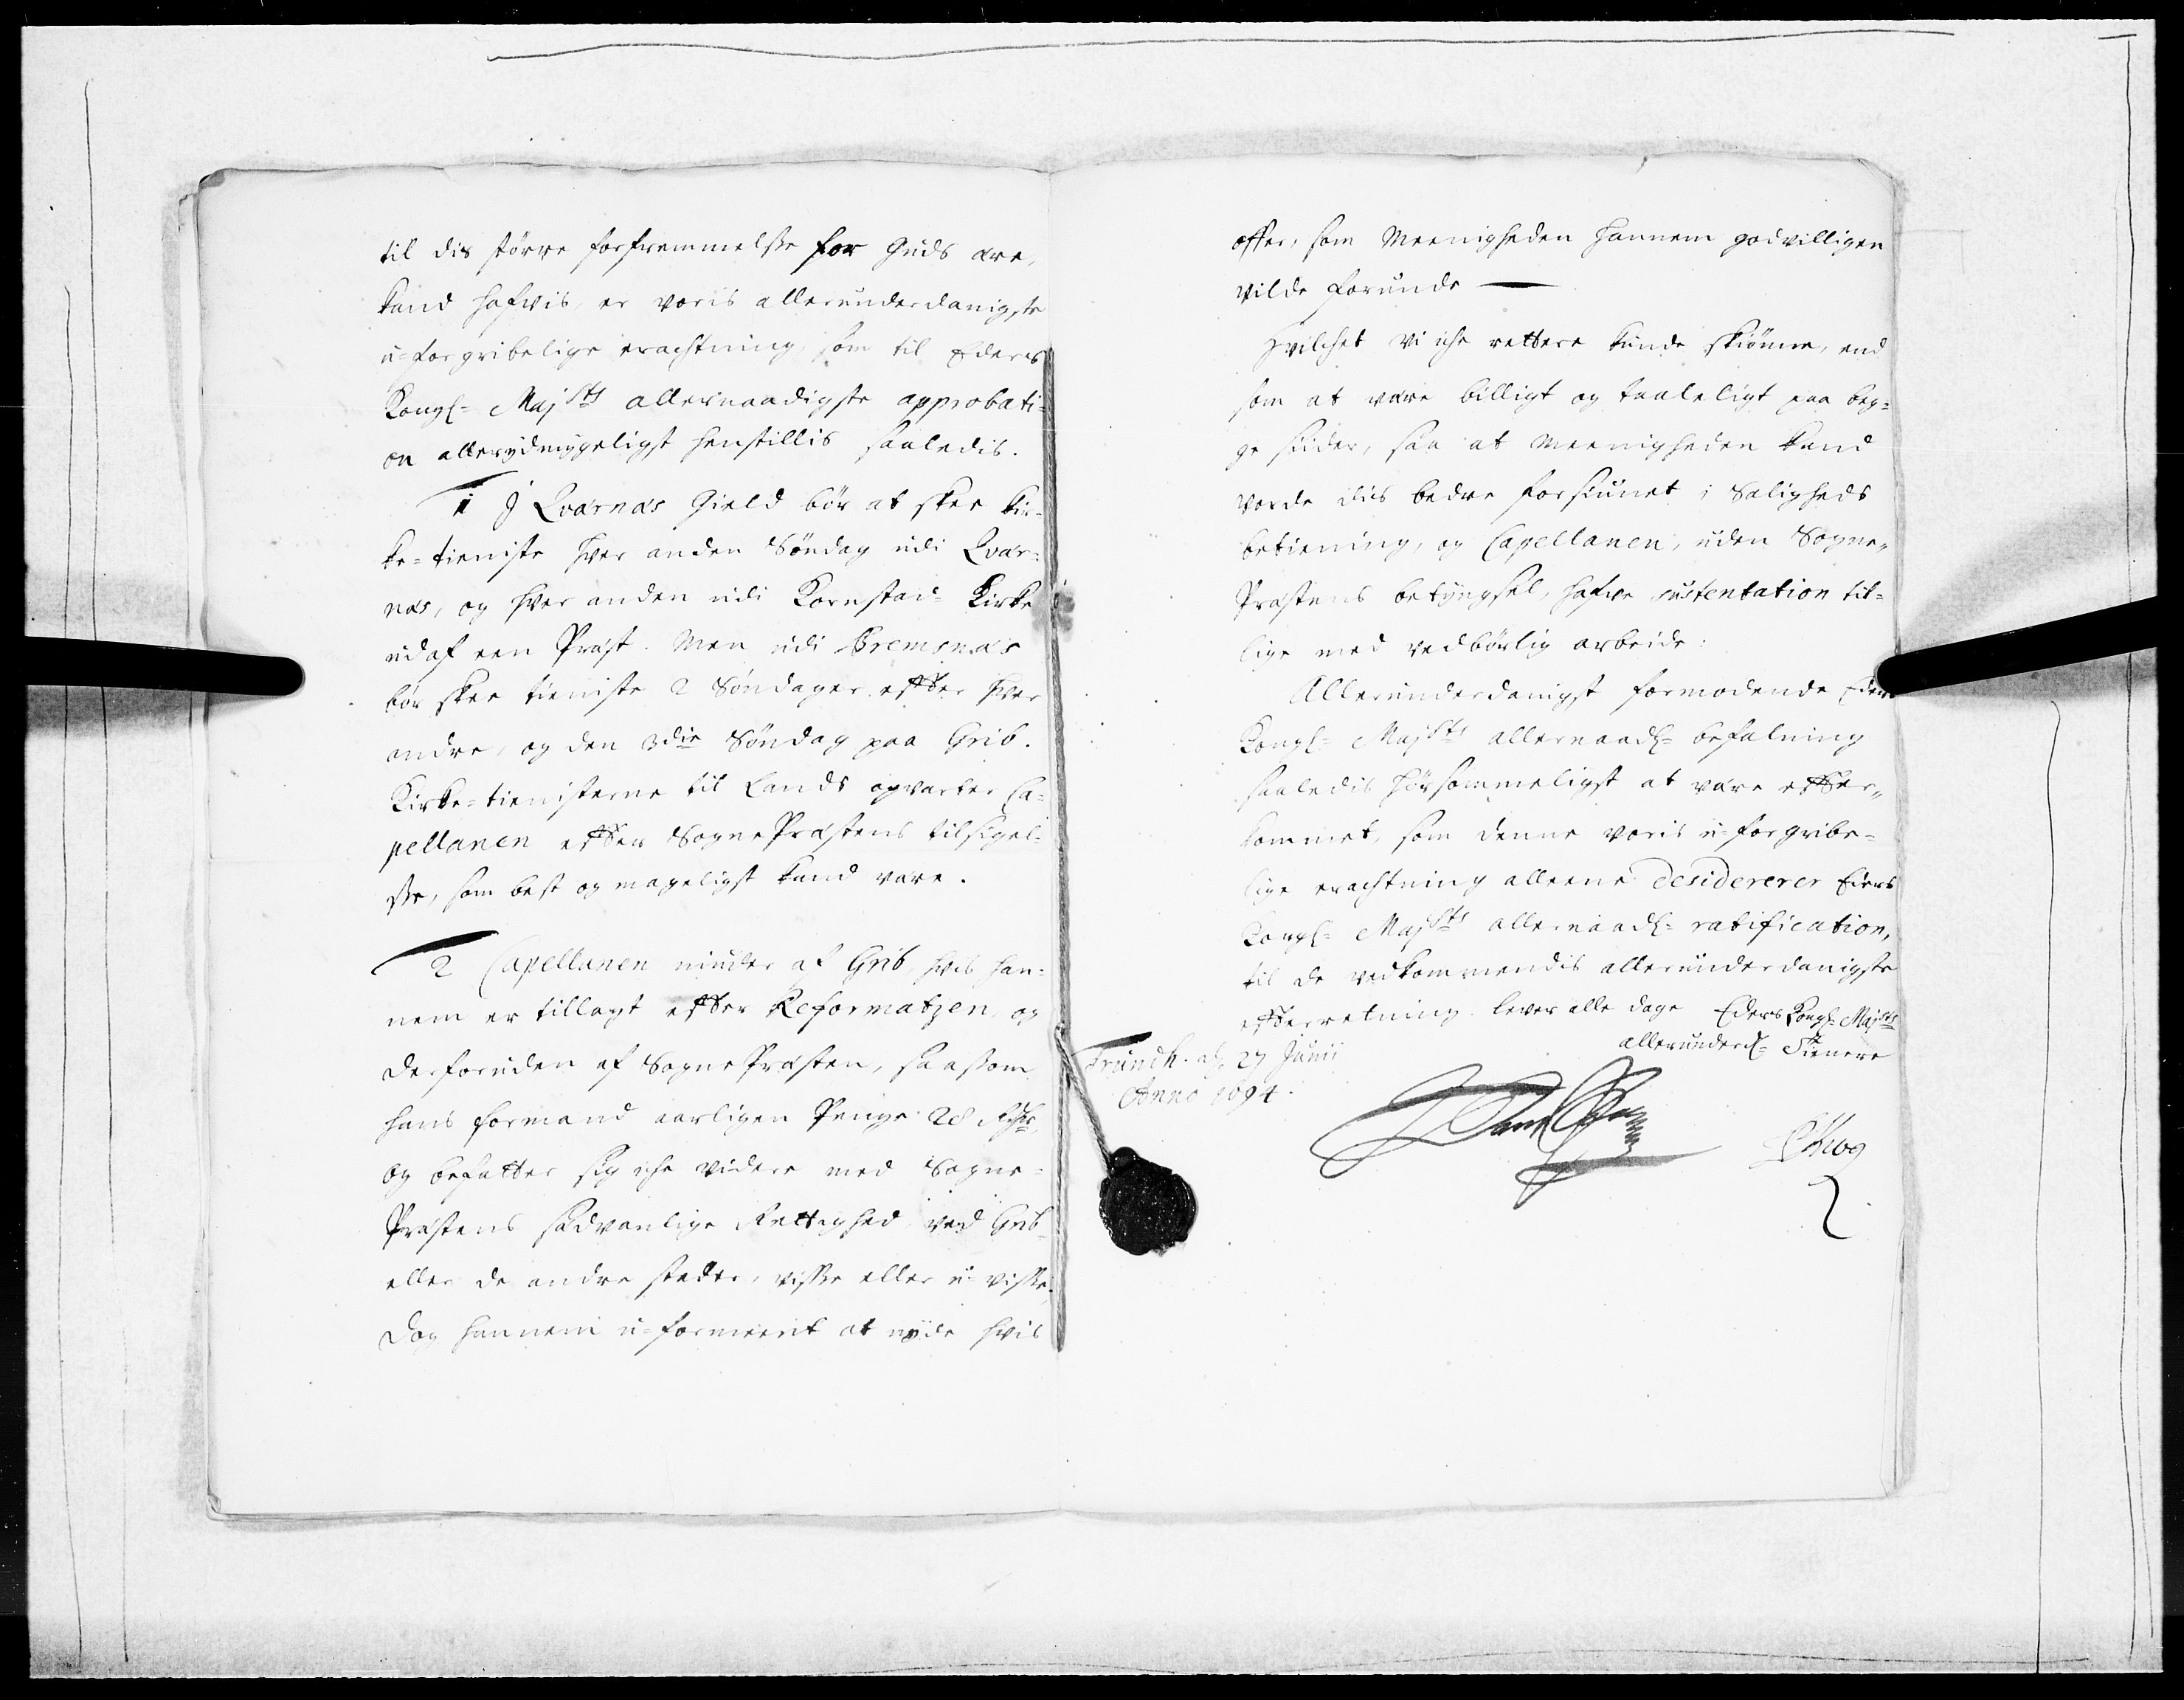 til dis større forfremmelse for Guds ære,
kand hafvis, er voris allerunderdanigste
u-forgribelige erachtning, som til Eders
Kongl- Maj.sts allernaadigste approbati-
on allerydmygeligst henstillis saaledis.
1 J Qværnæs Gield bør at skee kir-
ke-tieniste hver anden Søndag udi Qvær-
næs, og hver anden udi Kornstad- Kirke
udaf een Præst. Men udi Bremsnæs
bør skee tieniste 2 Søndager efter hver
andre, og den 3die Søndag paa Grib.
Kirke-tienisterne til Lands opvarter Ca-
pellanen efter SognePræstens tilsigel-
se, som best og mageligst kand være.
2 Capellanen niuder af Grib, hvis han-
nem er tillagt efter Reformatzen, og
desforuden af SognePræsten, saasom
hans formand aarligen Penge 28 Rdr,
og befatter sig iche videre med Sogne-
Præstens sædvanlige Rettighed ved Grib
eller de andre steder, visse eller u-visse.
Dog hannem u-formeent at nyde hvis
offer, som Meenigheden hannem godvilligen
vilde forunde
Hvilchet vi iche rettere kunde skiønne, end
som at være billigt og taaleligt paa beg-
ge siider, saa at Meenigheden kand
vorde dis bedre forsiunet i Saligheds
betiening, og Capellanen, uden Sogne-
Præstens betyngsel, hafve sustentation til-
lige med vedbørlig arbeide:
Allerunderdanigst formodende Eders
Kongl- Maj.sts allernaadl- befalning
saaledis hørsommeligst at være efter-
kommet, som denne voris u-forgribe-
lige erachtning alleene desidererer Eders
Kongl- Maj.sts allernaadl- ratification,
til de vedkommendis allerunderdanigste
efterretning. lever alle dage Eders Kongl- Maj.sts
allerunderd- Tienere
Trundh. ad. 27 Junii
Anno 1694.
Krog